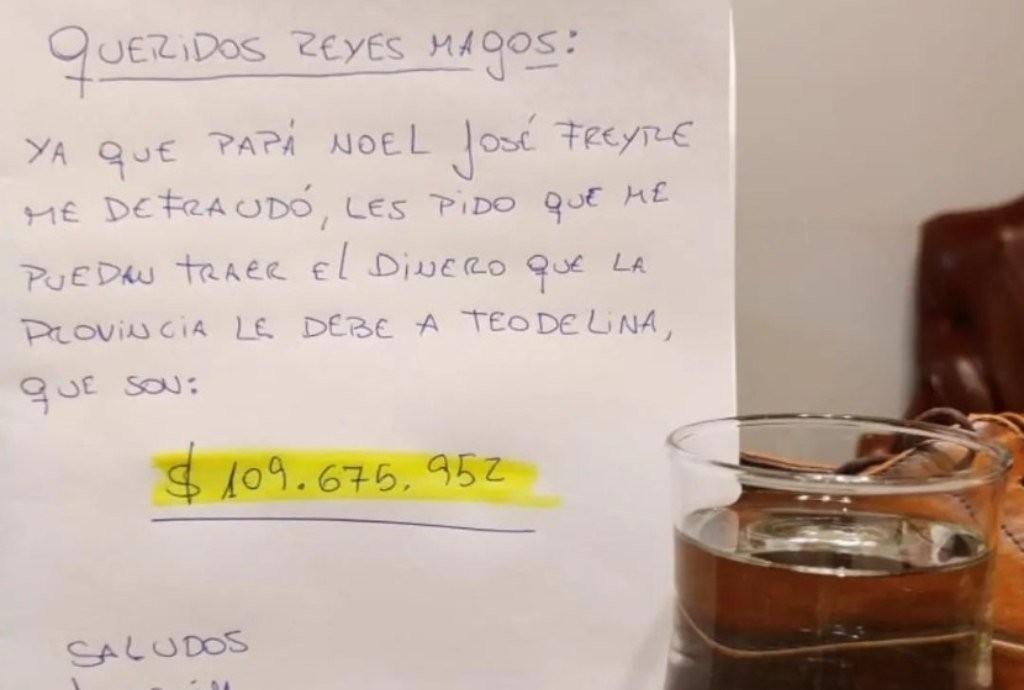 QUERIDOS REYES MAGOS:
YA QUE PAPÁ NOEL JOSÉ FREYRE
ME DEFRAUDÓ, LES PIDO QUE ME
PUEDAN TRAER El DINERO QUE LA
PROVINCIA LE DEBE A TEODELINA,
QUE SON:
$ 109.675.952
SALUDOS